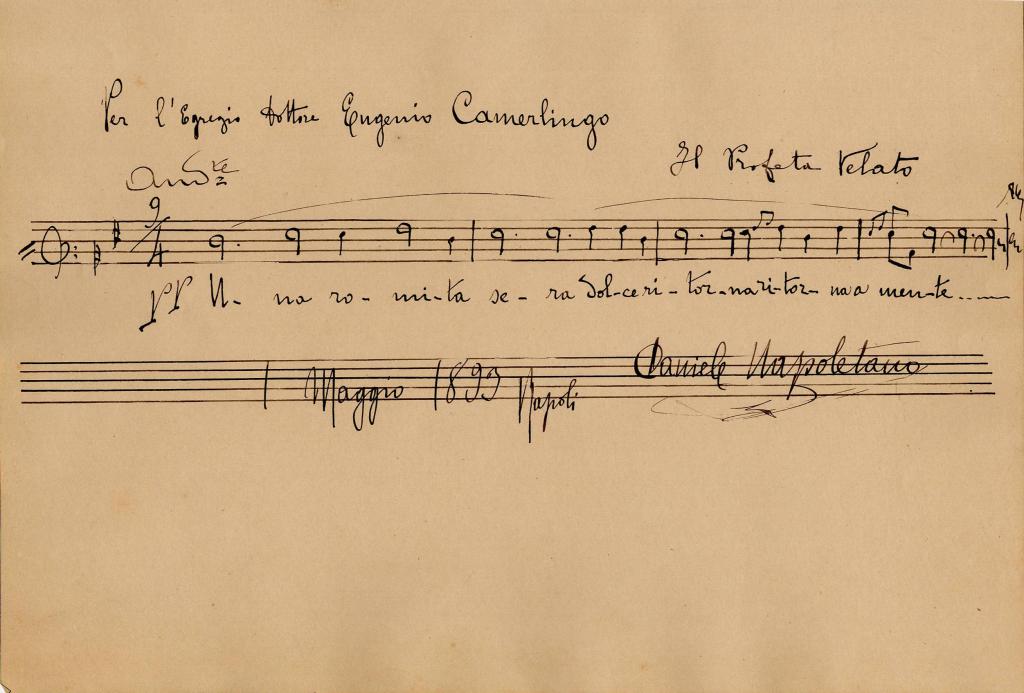 Per l'Egregio Dottore Eugenio Camerlingo
Il Profeta Velato
And.te
9
4
PP U- na ro- mi-ta se- ra dol-ce ri- tor-na ri-tor- na a men-te......
Maggio 1893 Napoli
Daniele Napoletano